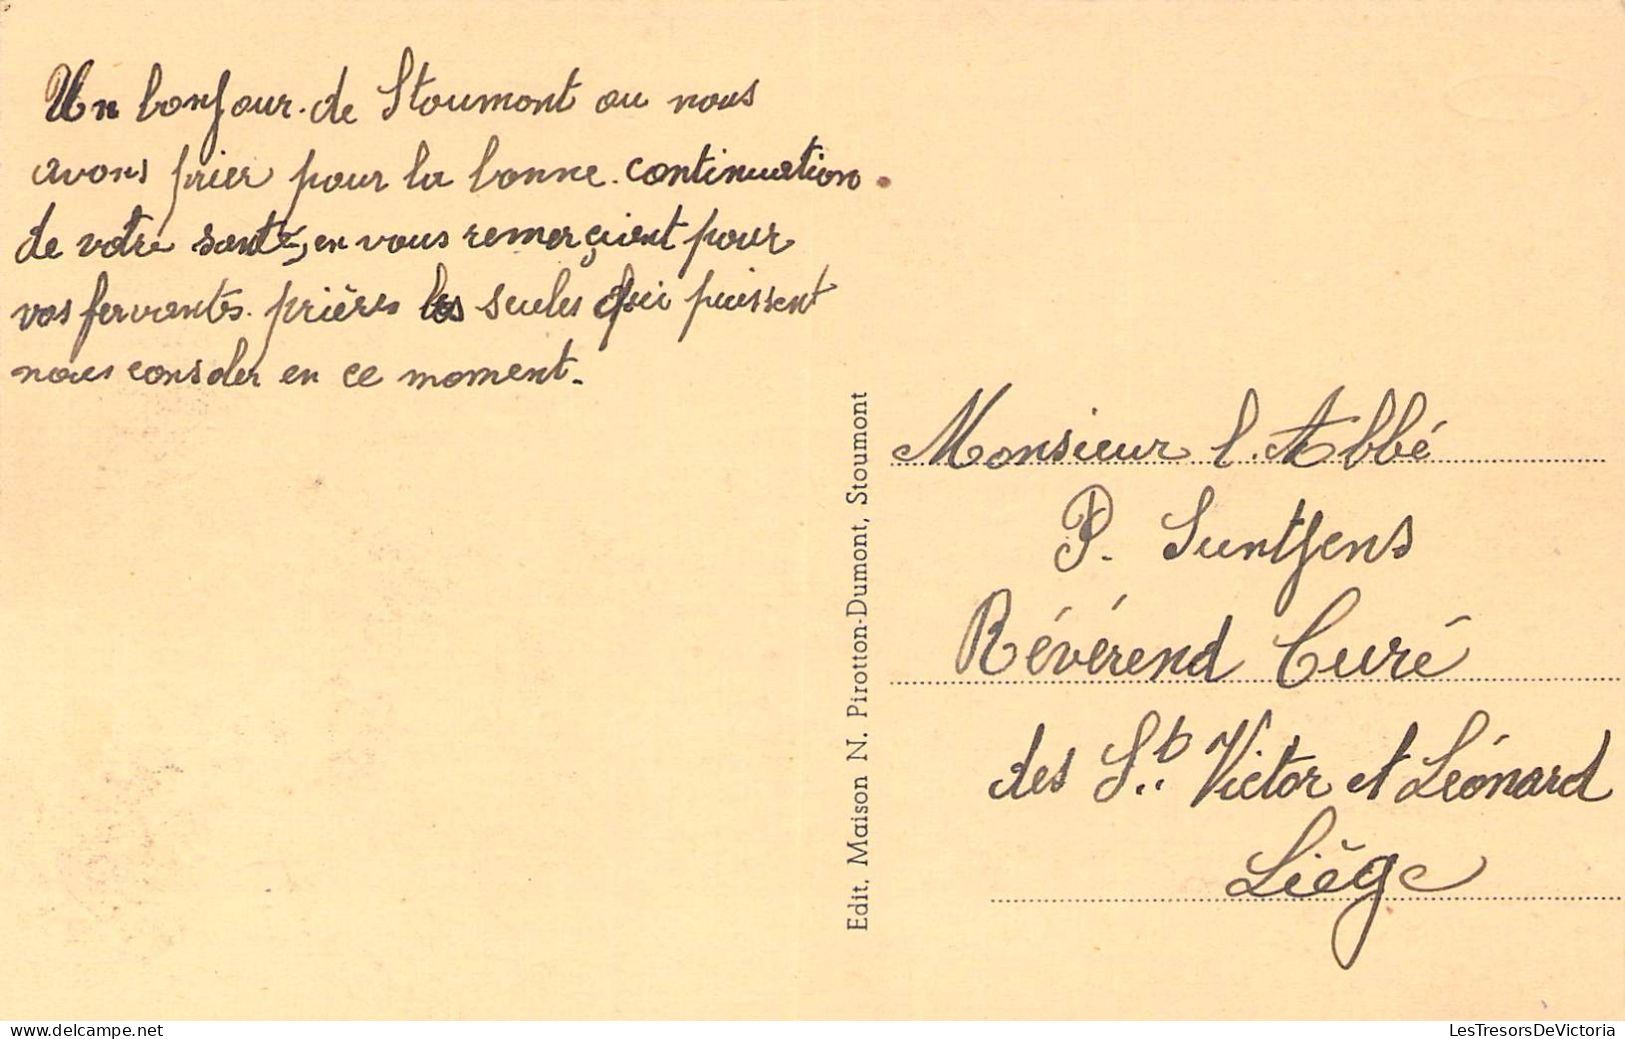 Un bonjour de Stoumont ou nous
avons prier pour la bonne continuation
de votre santé, en vous remerçient pour
vos ferventes prières les seules qui puissent
nous consoler en ce moment.
Edit. Maison N. Pirotton-Dumont, Stoumont
Monsieur l'Abbé
P. Suntjens
Révérend Curé
des St. Victor et Léonard
Liège
delcampe.net
LesTresorsDeVictoria